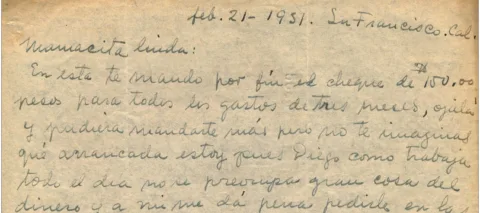 feb. 21 - 1931. Sn Francisco. Cal.
Mamacita linda:
En esta te mando por fín el cheque de $100.00
pesos para todos los gastos de tres meses, ojalá
y pudiera mandarte más pero no te imaginas
qué arrancada estoy pues Diego como trabaja
todo el dia no se preocupa gran cosa del
dinero y a mi me dá pena pedirle en la